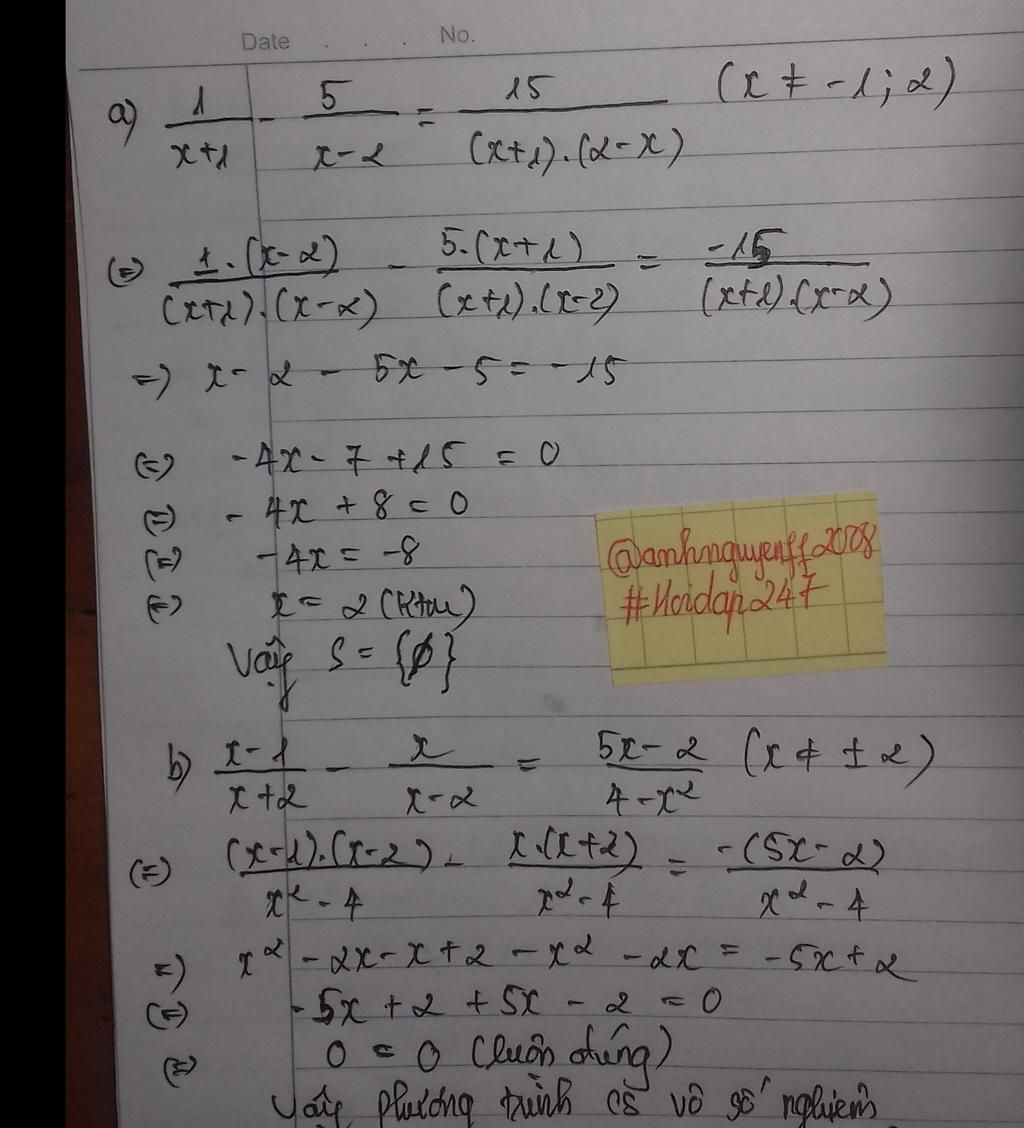 Date . . . No.
a) 1/(x+1) - 5/(x-2) = 15/((x+1).(2-x)) (x ≠ -1; 2)
(=) 1.(x-2)/((x+1).(x-2)) - 5.(x+1)/((x+1).(x-2)) = -15/((x+1).(x-2))
=) x - 2 - 5x - 5 = -15
(=) -4x - 7 + 15 = 0
(=) -4x + 8 = 0
(=) -4x = -8
(=) x = 2 (Ktm)
Vậy S = {∅}
@anhnguyenff2008
#Hoidap247
b) (x-1)/(x+2) - x/(x-2) = (5x-2)/(4-x²) (x ≠ ±2)
(=) (x-1).(x-2)/(x²-4) - x.(x+2)/(x²-4) = -(5x-2)/(x²-4)
=) x² - 2x - x + 2 - x² - 2x = -5x + 2
(=) -5x + 2 + 5x - 2 = 0
(=) 0 = 0 (luôn đúng)
Vậy phương trình có vô số nghiệm